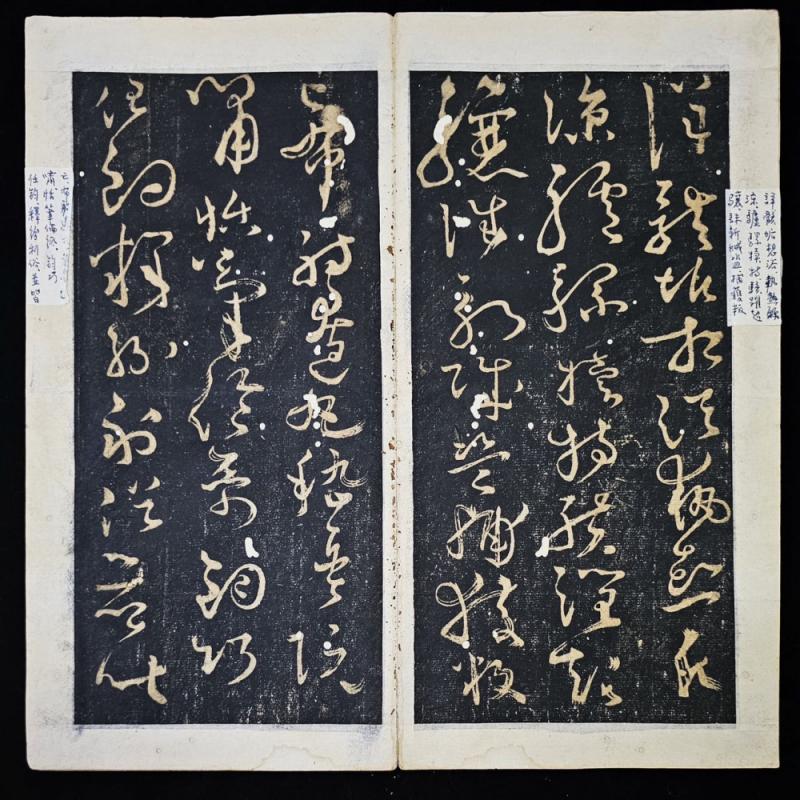 詳骸垢想浴執熱願
涼驢騾犢特駭躍超
驤誅斬賊盜捕獲叛
布射遼丸嵇琴阮
嘯恬筆倫紙鈞巧
任釣釋紛利俗並皆
詳骸垢想浴執熱願
涼驢騾犢特駭躍超
驤誅斬賊盜捕獲叛
亡布射
嘯恬筆倫紙鈞巧
任鈞釋紛利俗並皆